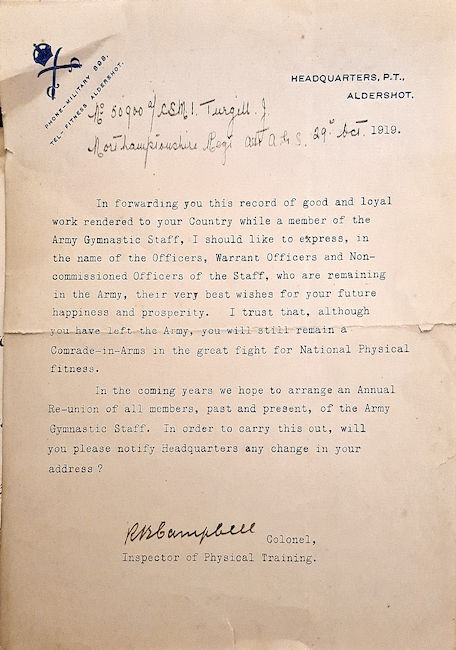 PHONE-MILITARY 898.
TEL-FITNESS ALDERSHOT.
HEADQUARTERS, P.T.,
ALDERSHOT.
No 50900 a/CSMI. Turgill. J.
Northamptonshire Regt att A.G.S. 29th Oct. 1919.
In forwarding you this record of good and loyal
work rendered to your Country while a member of the
Army Gymnastic Staff, I should like to express, in
the name of the Officers, Warrant Officers and Non-
commissioned Officers of the Staff, who are remaining
in the Army, their very best wishes for your future
happiness and prosperity. I trust that, although
you have left the Army, you will still remain a
Comrade-in-Arms in the great fight for National Physical
fitness.
In the coming years we hope to arrange an Annual
Re-union of all members, past and present, of the Army
Gymnastic Staff. In order to carry this out, will
you please notify Headquarters any change in your
address ?
R B Campbell Colonel,
Inspector of Physical Training.